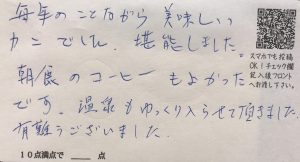 毎年のことながら 美味しいっ
カニでした。堪能しました。
朝食のコーヒーもよかった
です。温泉もゆっくり入らせて頂きました。
有難うございました。
スマホでも投稿
OK！チェック欄
記入後フロント
へお渡し下さい。
10点満点で ＿＿ 点